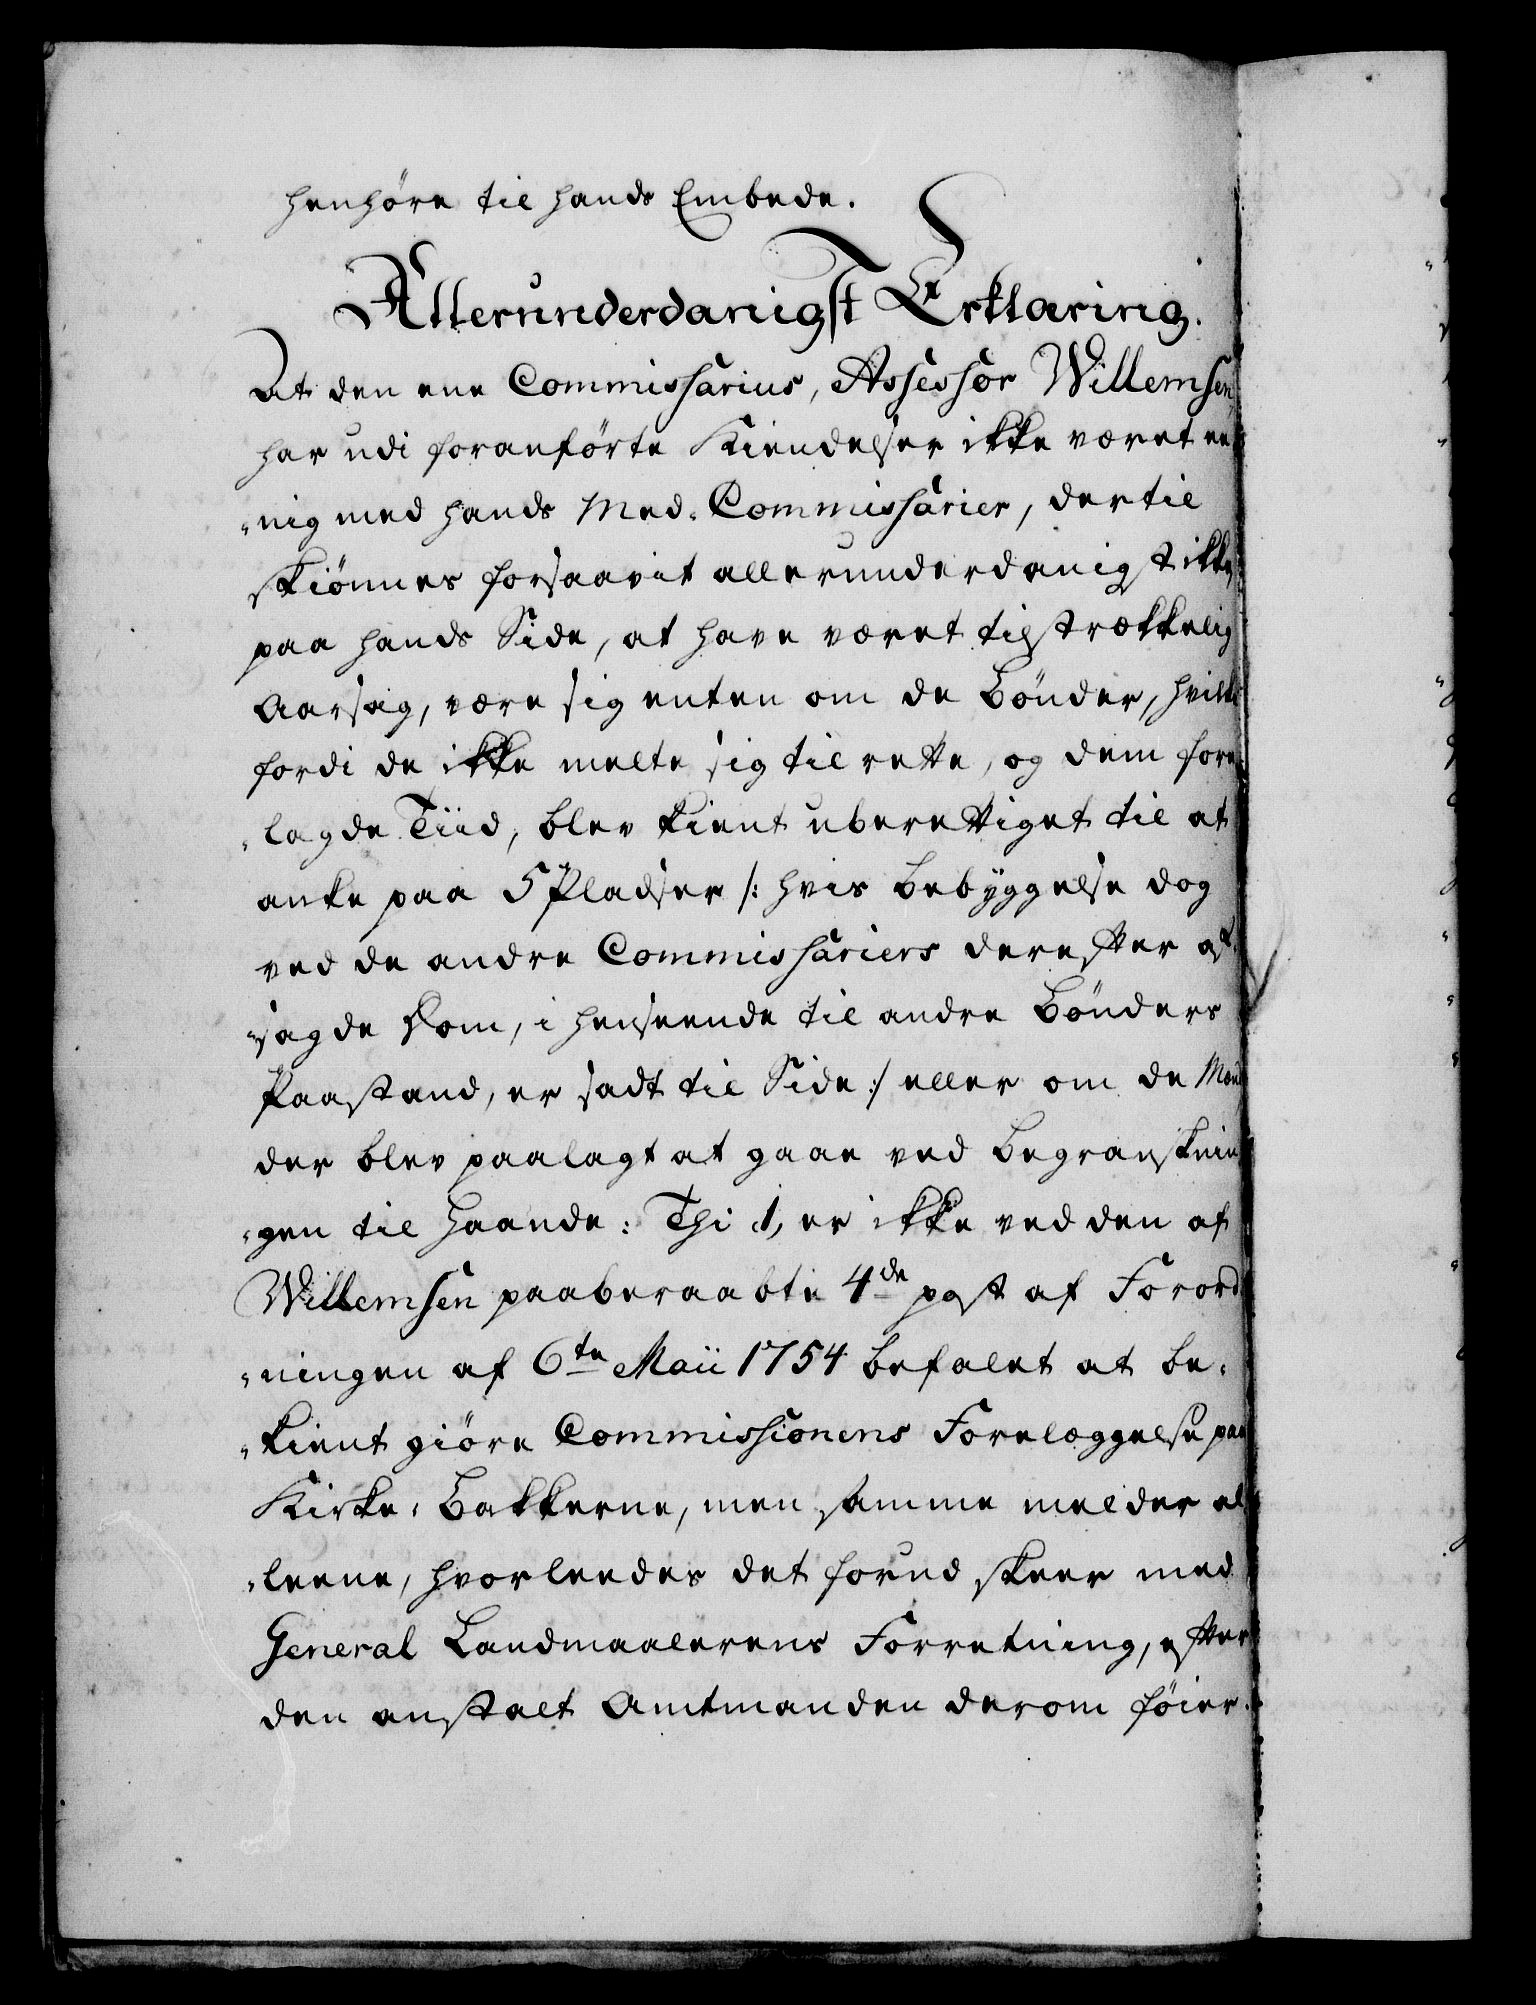 henhöre til hands Embede.
Allerunderdanigst Erklæring.
At den ene Commissarius, Assessor Willemsen,
har udi foranförte Kiendelser ikke været ee
„nig med hands Med-Commissarier, dertil
skiönnes forsaavit allerunderdanigst ikke,
paa hands Side, at have været tilstrækkelig
Aarsag, være sig enten om de Bönder, hvilke
fordi de ikke melte sig til rette, og dem fore
„lagde Tiid, blev kient uberettiget til at
anke paa 5 Pladser /: hvis Bebyggelse dog
ved de andre Commissariers derefter af-
„sagde Dom, i henseende til andre Bönders
Paastand, er sadt til Side :/ eller om de Mænd
der blev paalagt at gaae ved Begransknin
„gen til Haande: Thi 1, er ikke ved den af
Willemsen paaberaabte 4de post af Forord
„ningen af 6te Maii 1754 befalet at be-
„kient giöre Commissionens Forelæggelse paa
Kirke-Bakkerne, men samme melder al
„leene, hvorleedes det forud skeer med
General Landmaalerens Forretning, efter
den anstalt Amtmanden derom föier.